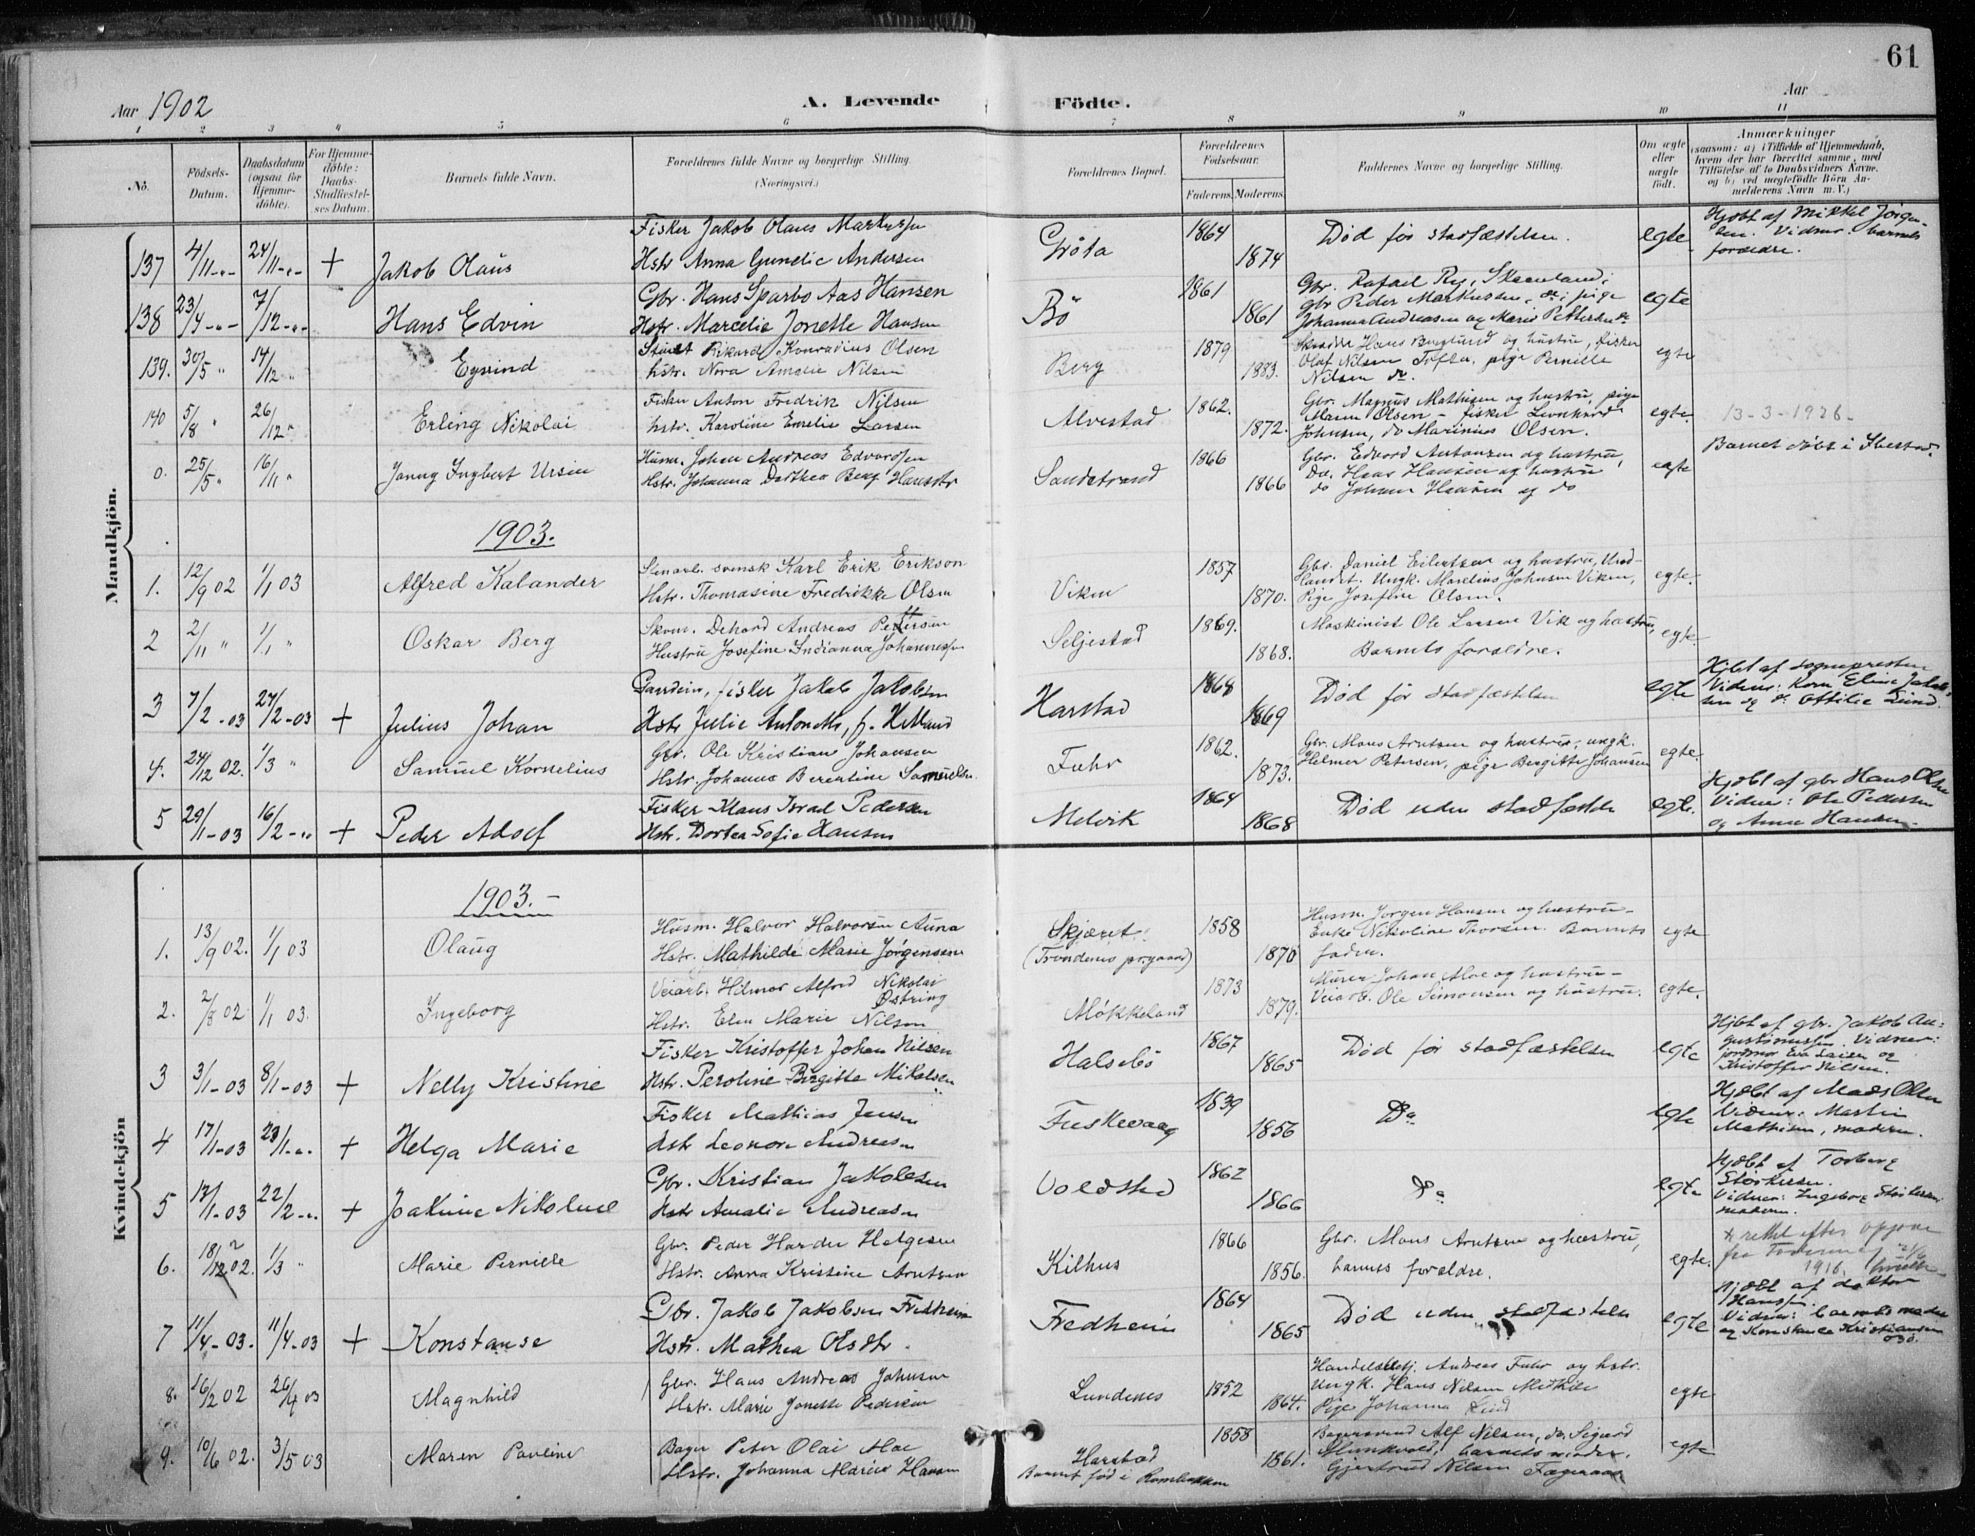 61
Aar 1902
A. Levende Födte.
Aar
1 2 3 4 5 6 7 8 9 10 11
No.
Födsels-Datum.
Daabsdatum (ogsaa for Hjemme-döbte).
For Hjemme-döbte: Daabs-Stadfæstel-ses Datum.
Barnets fulde Navn.
Forældrenes fulde Navne og borgerlige Stilling.
(Næringsvei.)
Forældrenes Bopæl.
Forældrenes Födselsaar.
Faderens. Moderens.
Faddernes Navne og borgerlige Stilling.
Om ægte eller uægte födt.
Anmærkninger
(saasom: a) i Tilfælde af Hjemmedaab,
hvem der har forrettet samme, med
Tilföielse af to Daabsvidners Navne.
og b) ved uægtefödte Börn An-
melderens Navn m. V.)
Mandkjön.
Fisker Jakob Olaus Markussen
137 4/11 -"- 24/11 -"- + Jakob Olaus
Hstr Anna Gunelie Andersen
Gröta 1864 1874
Död för stadfæstelsen.
egte
Hjdbt af Mikkel Jörgen-
sen. Vidner: barnets
forældre.
Gbr. Hans Sparbo Aas Hansen
138 23/4 -"- 7/12 -"- Hans Edvin
Hstr. Marcelie Jonette Hansen
Bö 1861 1861
Gbr. Rafael Ry, Skaanland;
gbr Peder Markussen, do; pige
Johanna Andreasen og Marie Pettersen do
egte
139. 30/5 " 14/12 " Eyvind
Rikard Konradius Olsen
hstr. Nora Amalie Nilsen
Berg 1879 1883.
Hans Berglund og hustru, fisker
Olaf Nilsen Tofta, pige Pernille
Nilsen do.
egte
140 5/8 " 26/12 " Erling Nikolai
Fisker Anton Fredrik Nilsen
hstr. Karoline Emelie Larsen
Alvestad 1862. 1872.
Gbr. Magnus Mathisen og hustru, pige
Maren Olsen - fisker Leonhard
Johnsen, do Marinius Olsen.
egte.
13-3-1926-
0. 25/5 " 16/11 " Jenny Ingbert Ursin
Husm. Johan Andreas Edvardsen
Hstr. Johanna Dorthea Berg Hansdtr
Sandstrand 1866 1866
Gbr. Edvard Antonsen og hustru,
Do. Hans Hansen og hustru
do Johan Hansen og do
egte
Barnet döbt i Ibestad.
1903.
1. 12/9 02 1/1 03 Alfred Kalander
svensk Karl Erik Erikson
Hstr. Thomasine Fredrikke Olsen
Viken 1857 1870.
Gbr. Daniel Eilertsen og hustru, Und-
landet. Ungk. Marelius Johnsen Viken,
Pige Josefine Olsen.
egte.
2 2/11 " 1/1 " Oskar Berg
Skom. Dehard Andreas Pettersen
Hustru Josefine Indianna Johannessen
Seljestad 1869. 1868.
Maskinist Ole Larsen Vik og hustru,
Barnets forældre.
egte.
3 7/2 -03 27/2 -03 + Julius Johan
fisker Jakob Jakobsen
Hstr Julie Antonette, f. Hilland
Harstad 1868 1869
Död för stadfæstelsen
egte
Hjdbt af sognepresten
Vidner: Karn Eline Jakob-
sen og do Ottilie Lund.
4. 24/12 02. 1/3 " Samuel Kornelius
Gbr. Ole Kristian Johansen
Hstr. Johanna Berentine Samuelsen
Fuhr 1862. 1873.
Gbr. Mons Arntsen og hustru, ungk.
Helmer Petersen, pige Bergitte Johansen
egte.
5 29/1 -03 16/2 -"- + Peder Adolf
Fisker Klaus Israel Pedersen
Hstr. Dortea Sofie Hansen
Melvik 1864 1868
Död uden stadfæstelse
egte.
Hjdbt af gbr Hans Olsen
Vidner: Ole Pedersen
og Anne Hansen.
Kvindekjön
1903.-
1. 13/9 02. 1/1 03 Olaug
Husm. Halvor Halvorsen Auna
Hstr. Mathilde Marie Jörgensen
Skjæret.
(Trondenes prgaard)
1858 1870
Husm. Jorgen Hansen og hustru -
Enke Nikoline Thorsen. Barnets
fader.
egte
2. 2/8 02 1/1 03. Ingeborg
Veiarb. Hilmar Alfred Nikolai
Østring
Hstr. Elen Marie Nilsen
Mökkeland 1873 1879.
Murer Johan Moe og hustru -
Veiarb. Ole Simonsen og hustru.
egte.
3 3/1 -03 8/1 -03 + Nelly Kristine
Fisker Kristoffer Johan Nilsen
Hstr. Peroline Birgitte Mikalsen
Halsebö 1867 1865
Död för stadfæstelsen
egte
Hjdbt af gbr. Jakob Au-
gustinussen. Vidner:
jordmor Eva Larsen og
Kristoffer Nilsen.
4 17/1 -03 23/1 -"- + Helga Marie
Fisker Mathias Jensen
Hstr Leonore Andreasen
Fuskevaag 1839 1856
Do
egte
Hjdbt af Mads Olsen
Vidner: Martin
Mathisen, moderen.
5 17/1 -03 22/2 -"- + Joakime Nikoline
Gbr. Kristian Jakobsen
Hstr Amalie Andreasen
Voldstad 1862 1866
Do
egte
Hjdbt af Torberg
Störkersen.
Vidner: Ingeborg Störkersen
moderen.
6. 18/12 02. 1/3 " Marie Pernille
Gbr. Peder Harder Helgesen
Hstr. Anna Kristine Arntsen
Kilhus 1866 1856.
Gbr. Mons Arntsen og hustru,
barnets forældre.
egte.
rettet efter opgave
fra 1916.
7 11/4 -03. 11/4 -03 + Konstanse
Gbr. Jakob Jakobsen Fredheim
Hstr. Mathea Olsdtr.
Fredheim 1864 1865
Död uden stadfæstelse
egte
Hjdbt af doktor
Hansen.
Vidner: barnets moder
og Konstance Kristiansen
8. 16/2 02 26/4 03 Magnhild
Gbr. Hans Andreas Johnsen
Hstr. Marie Jonette Pedersen
Lundenes 1852 1864.
Handelsbetj. Andreas Fuhr og hstr.
Ungk. Hans Nilsen
Pige Johanna Lind
egte
9. 10/6 02. 3/5 03 Maren Pauline
Bager Peter Olai Moe
Hstr. Johanna Marie Hansen
Harstad
Barnet föd i Rombakken
1858 1861.
Bagersvend Alf Nilsen, do Sigurd
barnets moder.
Gjertrud Nilsen Fagernæs
egte